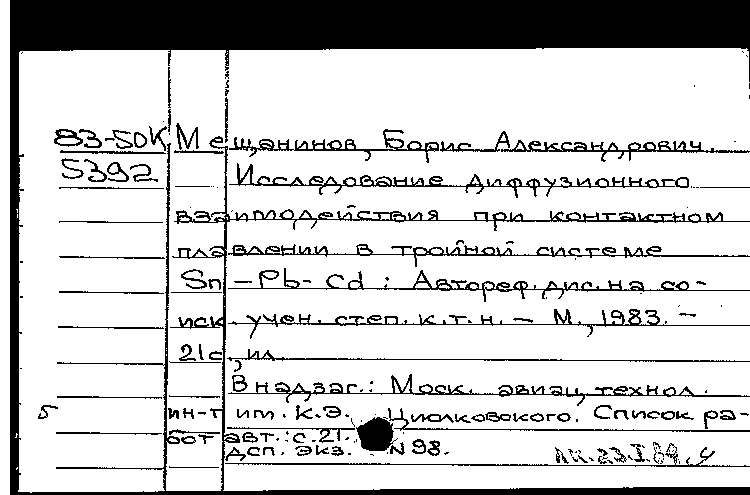 83-50К Мещанинов, Борис Александрович.
5392 Исследование диффузионного
взаимодействия при контактном
плавлении в тройной системе
Sn-Pb-Cd : Автореф. дис. на со-
иск. учен. степ. к.т.н. - М., 1983. -
21с., ил.
В надзаг.: Моск. авиац. технол.
б ин-т им. К.Э. Циолковского. Список ра-
бот авт.: с. 21.
дсп. экз. N 98.